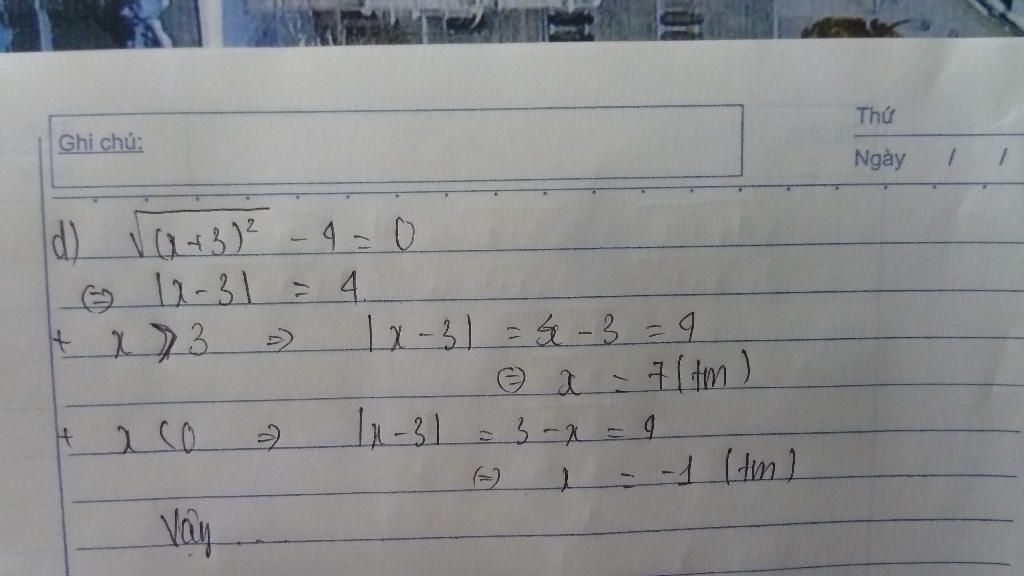 Ghi chú:
Thứ
Ngày / /
d) √(x+3)² - 4 = 0
⇔ |x-3| = 4
+ x ⩾ 3 ⇒ |x-3| = x - 3 = 4
⇔ x = 7 (tm)
+ x < 0 ⇒ |x-3| = 3-x = 4
⇔ x = -1 (tm)
Vậy ....